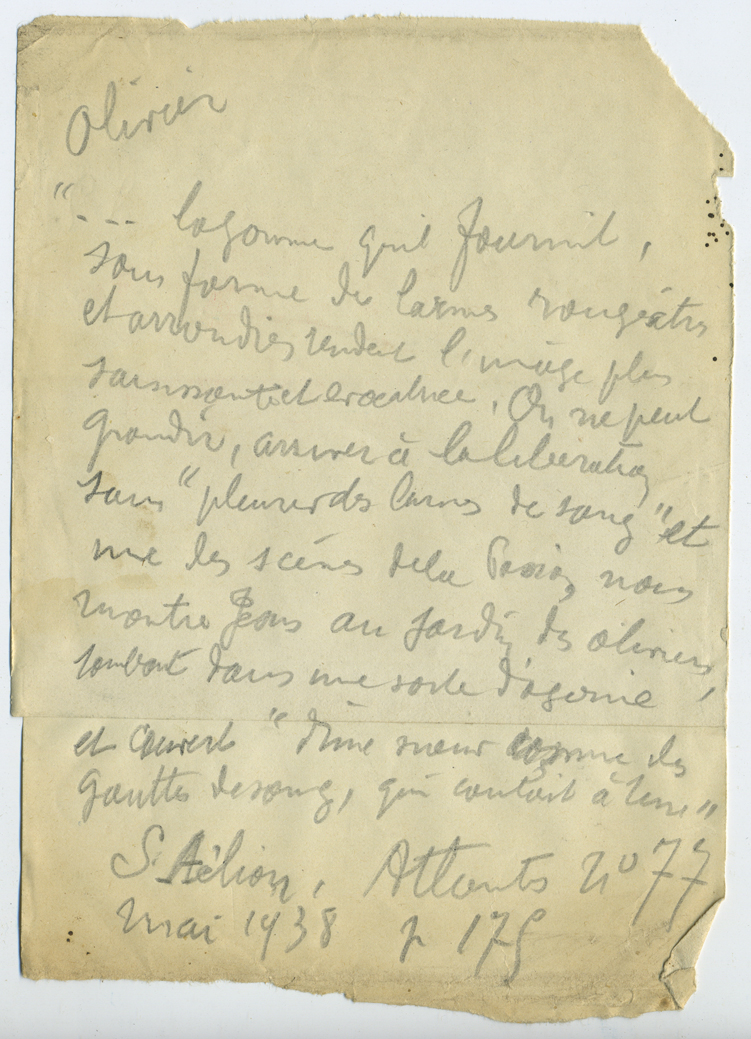 Olivier
"... la gomme qu'il fournit,
sous forme de larmes rougeâtres
et arrondies rendent l'image plus
saisissante et evocatrice. On ne peut
grandir, arriver à la libération
sans "pleurer des larmes de sang" et
une des scénes de la Passion nous
montre Jésus au Jardin des oliviers,
tombant dans une sorte d'agonie
et couvert "d'une sueur comme des
gouttes de sang, qui coulait à terre"
S. Hélion, Atlantis no 77
mai 1938 p 175